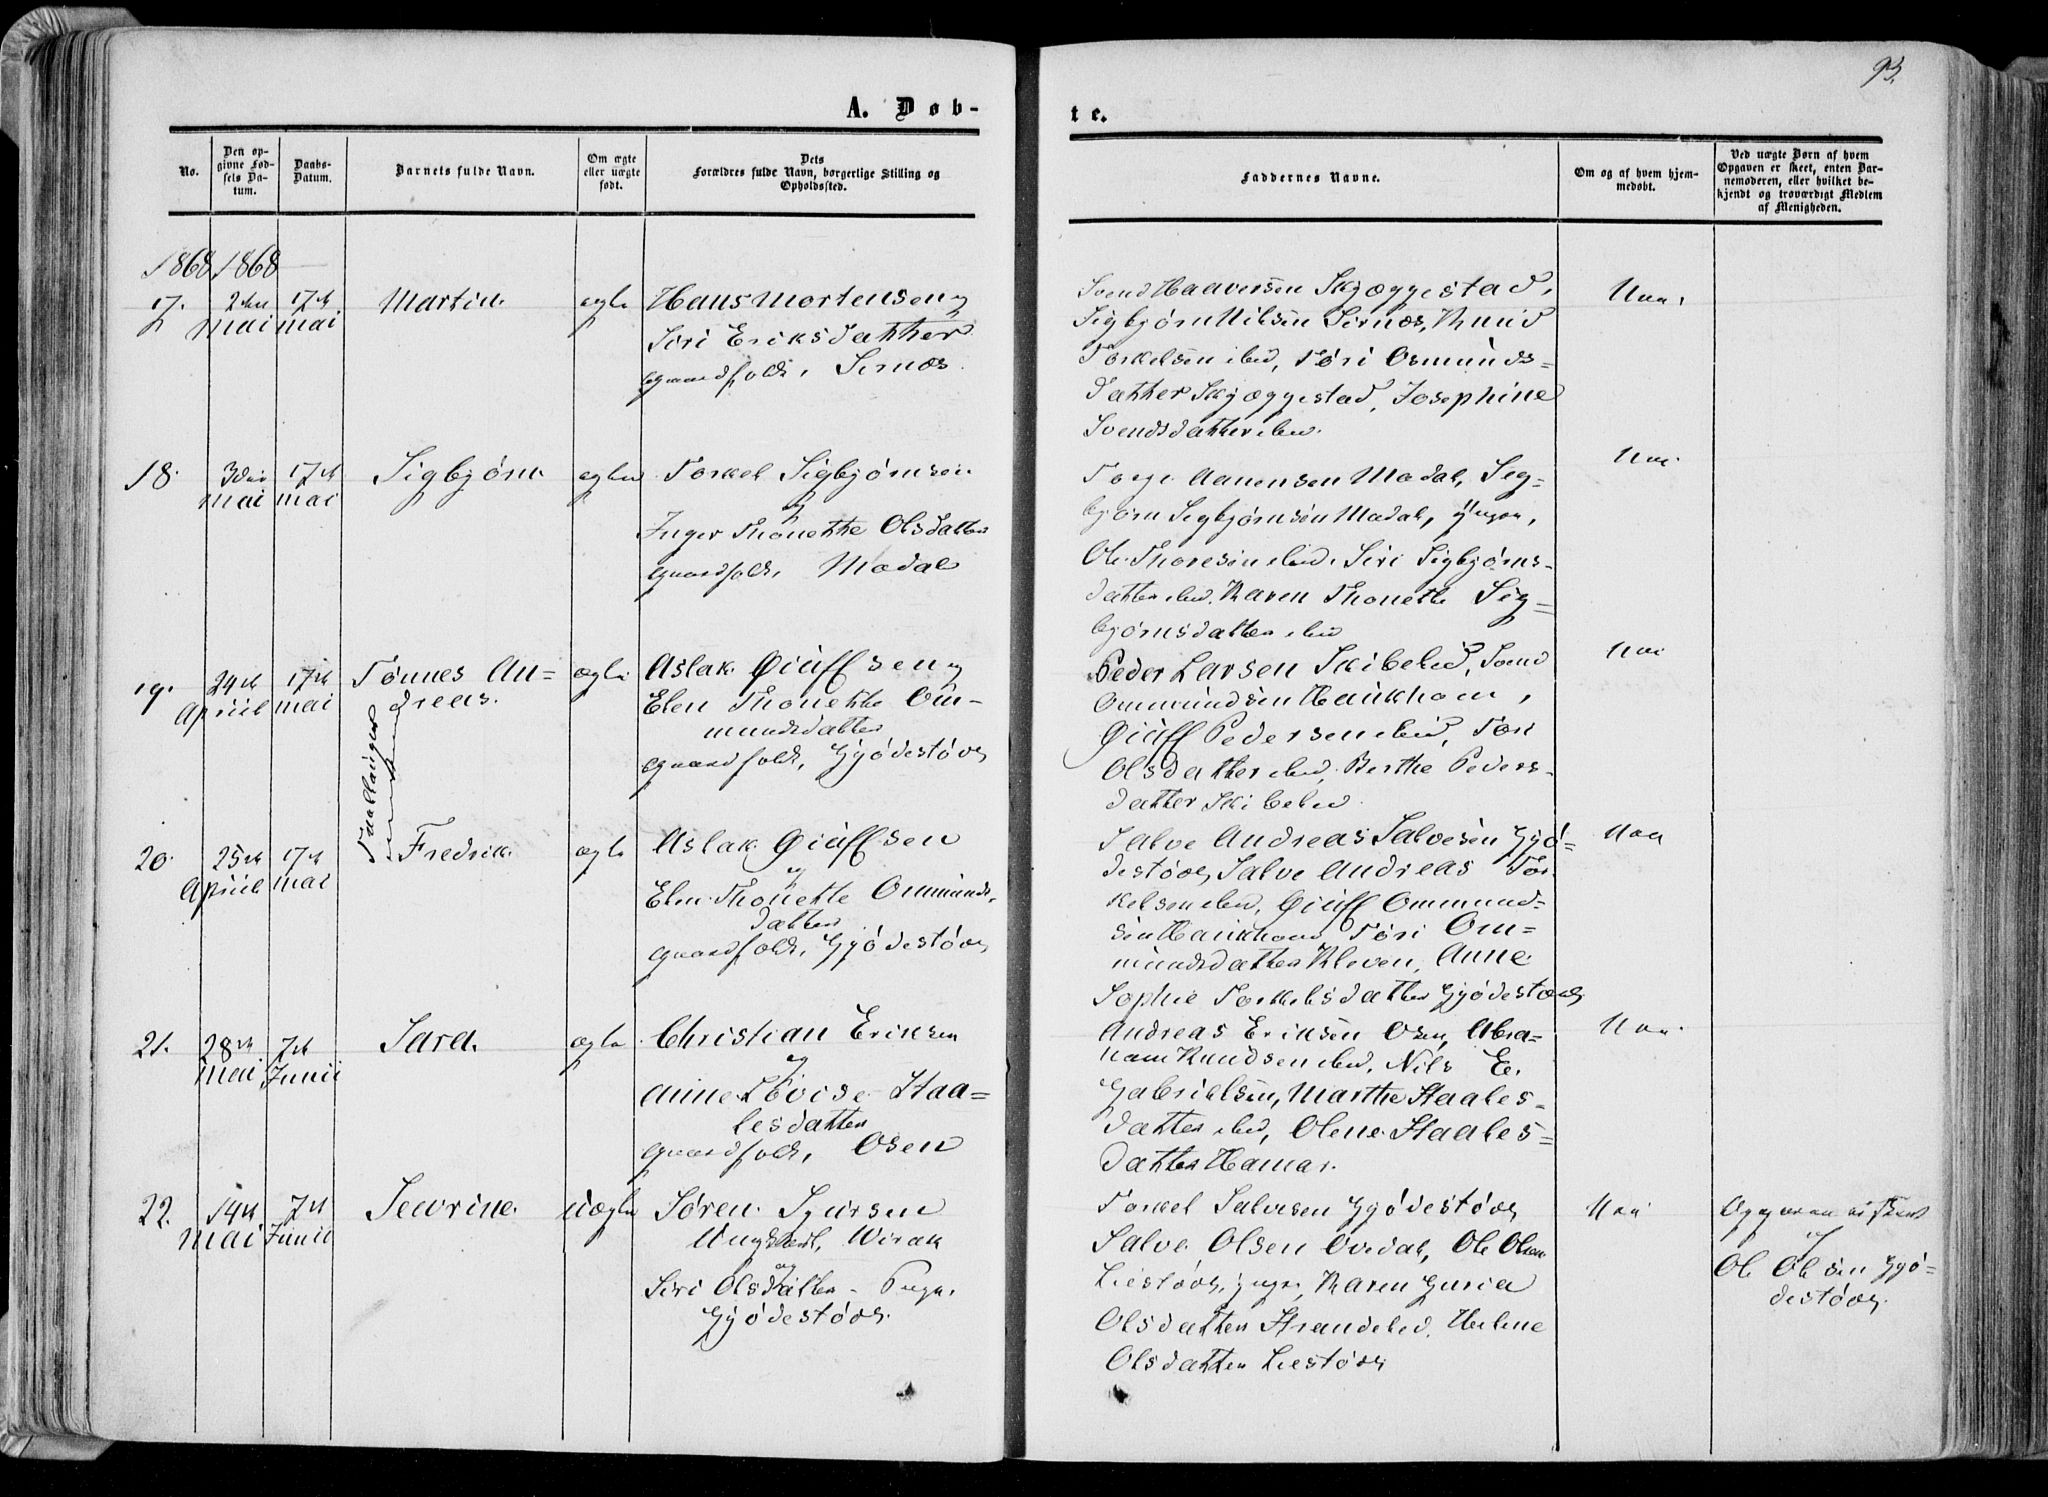 93.
A. Døb-
te.
No.
Den op-
givne Fød-
sels Da-
tum.
Daabs-
Datum.
Barnets fulde Navn.
Om ægte
eller uægte
født.
Dets
Forældres fulde Navn, borgerlige Stilling og
Opholdssted.
Faddernes Navne.
Om og af hvem hjem-
medøbt.
Ved uægte Børn af hvem
Opgaven er skeet, enten Bar-
nemoderen, eller hvilket be-
kjendt og troværdigt Medlem
af Menigheden.
1868 1868
17.
2den
Mai
17de
Mai
Martin
ægte
Hans Mortensen og
Siri Eriksdatter
Gaardfolk, Sirnæs
Svend Haaversen Skjæggestad,
Sigbjørn Nilsen Sirnæs, Knud
Torkelsen ibid, Tøri Osmunds=
datter Skjæggestad, Josephine
Svendsdatter ibid.
18.
3die
Mai
17de
Mai
Sigbjørn
ægte
Torkel Sigbjørnsen
og
Inger Thonette Olsdatter
Gaardfolk, Modal
Aanensen Modal, Sig=
bjørn Sigbjørnsen Modal, Ungk.,
Ole Thoresen ibid. Siri Sigbjørns-
datter ibid. Karen Thonette Sig=
bjørnsdatter ibid
19.
24de
April
17de
Mai
Tønnes An=
dreas.
Tvillinger
ægte
Aslak Giuffsen og
Elen Thonette Om-
mundsdatter
Gaardfolk, Gjødestøl
Peder Larsen Skibelid, Svend
Ommundsen Haukhom,
Giuff Pedersen ibid, Tøri
Olsdatter ibid, Berthe Peders-
datter Skibelid.
20.
25de
April
17de
Mai
Fredrik
ægte
Aslak Giuffsen
og
Elen Thonette Ommunds-
datter
Gaardfolk, Gjødestøl
Salve Andreas Salvesen Gjø=
destøl, Salve Andreas Tor-
kelsen ibid, Giuff Ommund-
sen Haukhom Tøri Om=
mundsdatter Kleven, Anne
Sophie Torkelsdatter Gjødestøl
21.
28de
Mai
7de
Junii
Sara
ægte
Christian Eriksen
og
Anne Lovise Staa=
lesdatter
Gaardfolk, Osen
Andreas Eriksen Osen, Abra=
ham Knudsen ibid, Nils E.
Gabrielsen, Marthe Staales-
datter ibid, Olene Staales=
datter Hamar.
22.
14de
Mai
7de
Junii
Sevrine
uægte
Søren Sjursen
Ungkarl, Wirak
og
Siri Olsdatter Pige,
Gjødestøl.
Torkel Salvesen Gjødestøl
Salve Olsen Ovedal, Ole Olsen
Liestøl, Ungk., Karen Guria
Olsdatter Strandelid, Helene
Olsdatter Liestøl
Opgaven er skeet
af
Ole Olsen Gjø=
destøl.